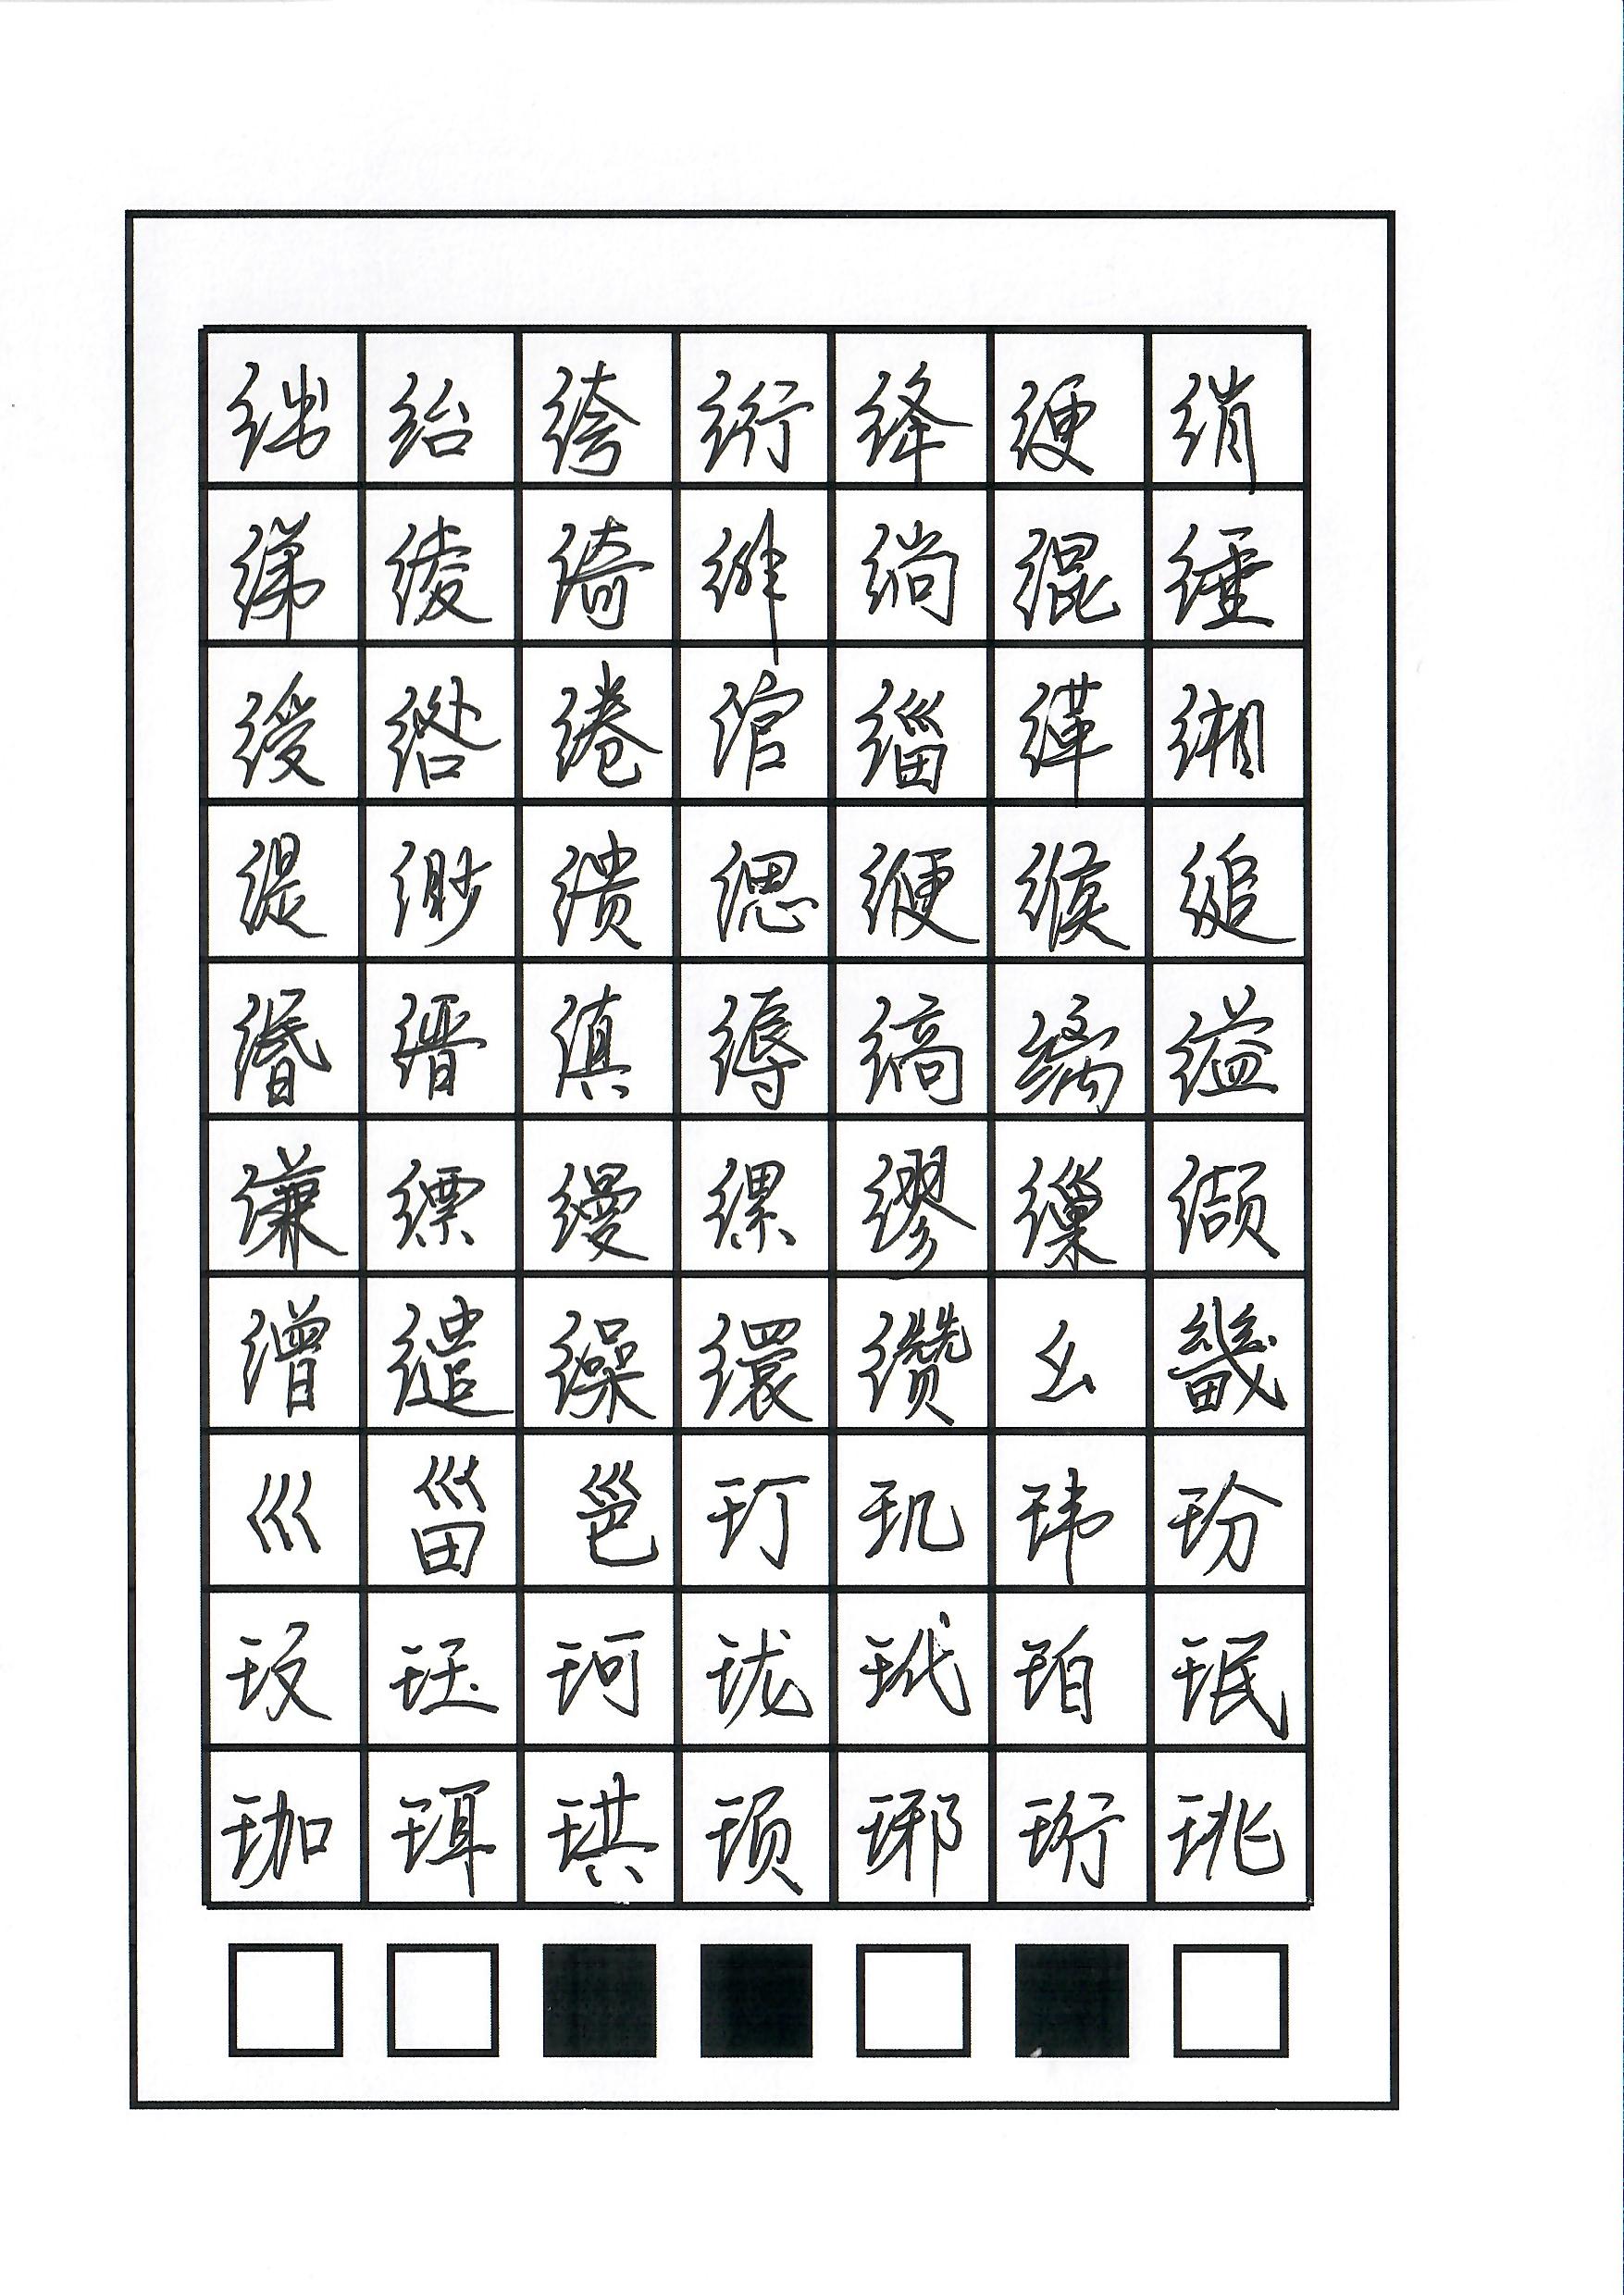 绌绐绔绗绛绠绡
绨绫绮绯绱绲缍
绶绺绻绾缁缂缃
缇缈缋缌缏缑缒
缗缙缜缛缟缡缢
缣缥缦缧缪缫缬
缯缱缲缳缵幺畿
巛甾邕玎玑玮玢
玟珏珂珑玳珀珉
珈珥珙顼琊珩珧